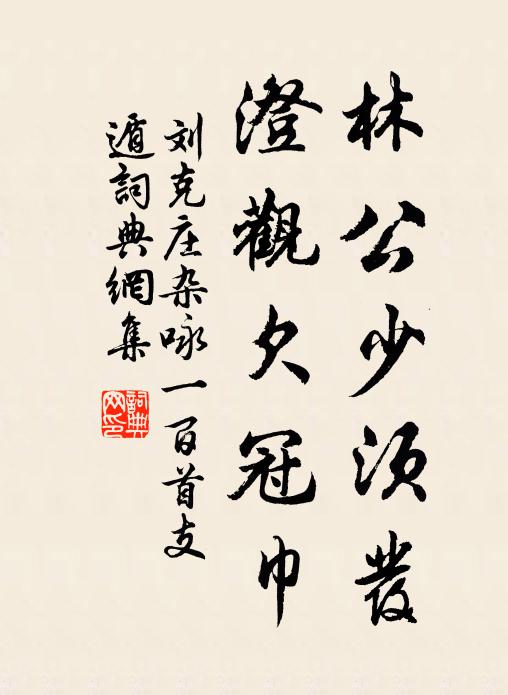 林公少须發
澄觀欠冠巾
刘克庄杂咏一百首支
遁詞典網集
詞典网印